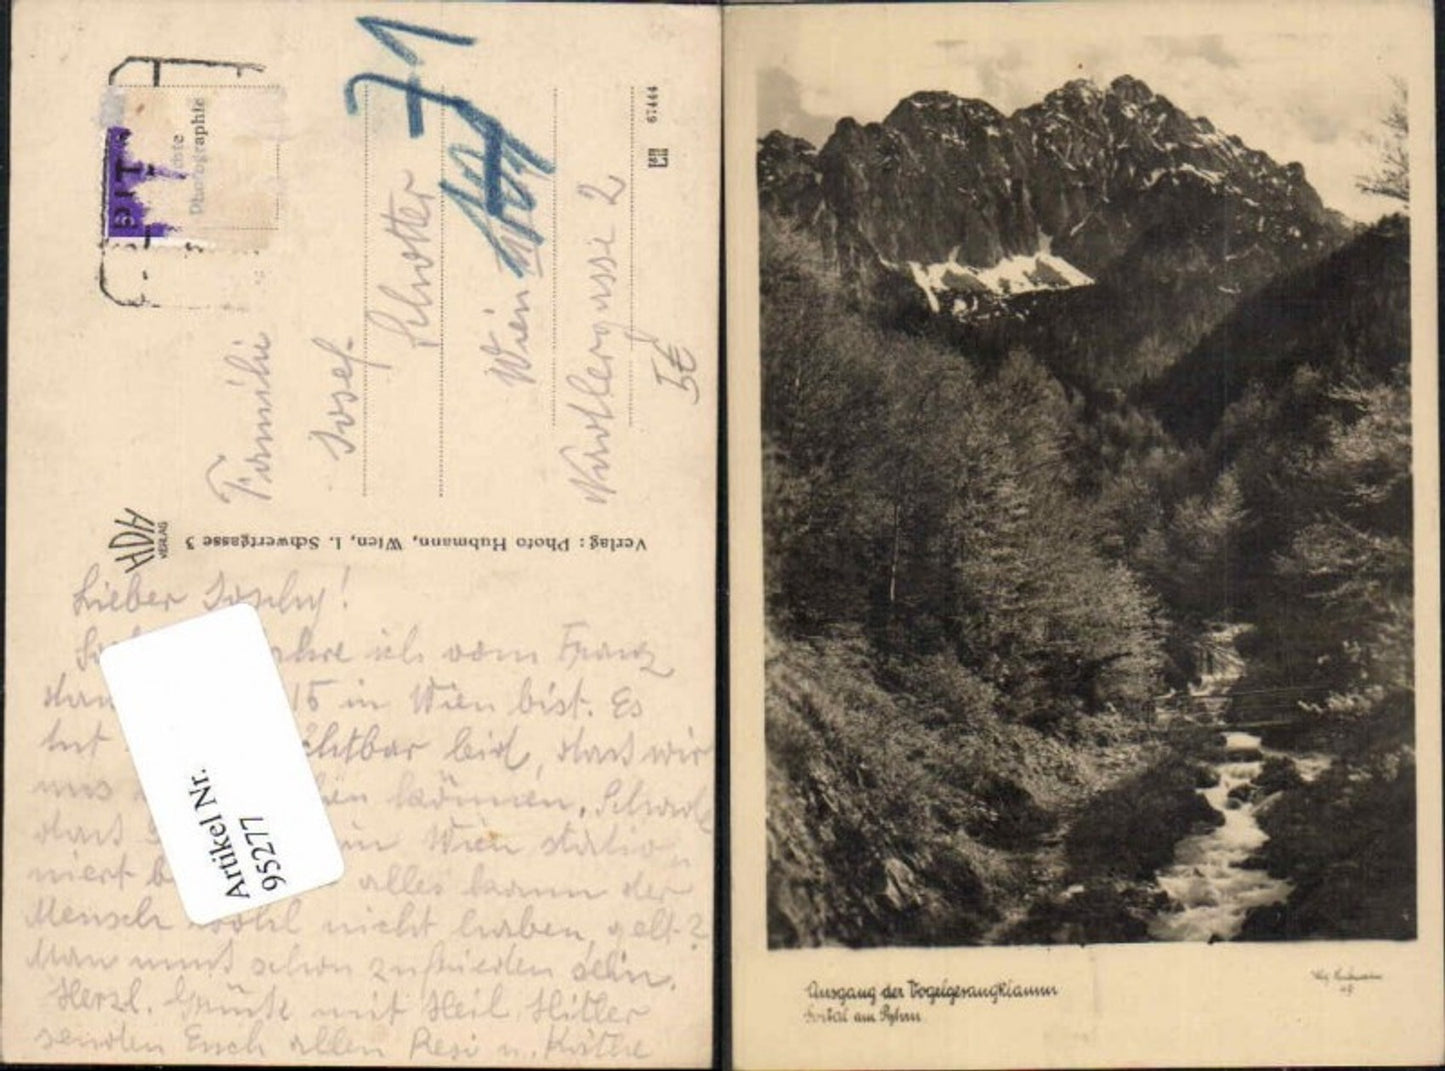 Echte
Photographie
Familie
Josef
Schotter
Wien
2
71
67444
5€
HDH
VERLAG
Verlag: Photo Hubmann, Wien, 1. Schwertgasse 3
Lieber !
ich vom Franz
15 in Wien bist. Es
tut leid, dass wir
uns können. Schade
dass in Wien statio
niert alles kann der
Mensch wohl nicht haben, gelt?
Man muss schon zufrieden sein.
Herzl. Grüße mit Heil Hitler
senden Euch allen Resi u. Käthe
Artikel Nr.
95277
Ausgang der Vogelgesangklamm
am Pyhrn